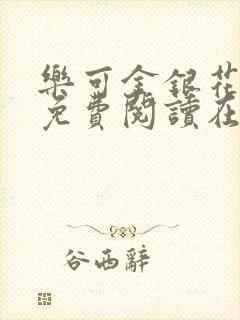 樂可金銀花
免費閱讀在
谷西辭